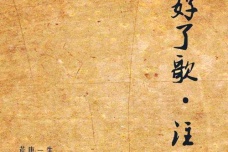 好了歌·注